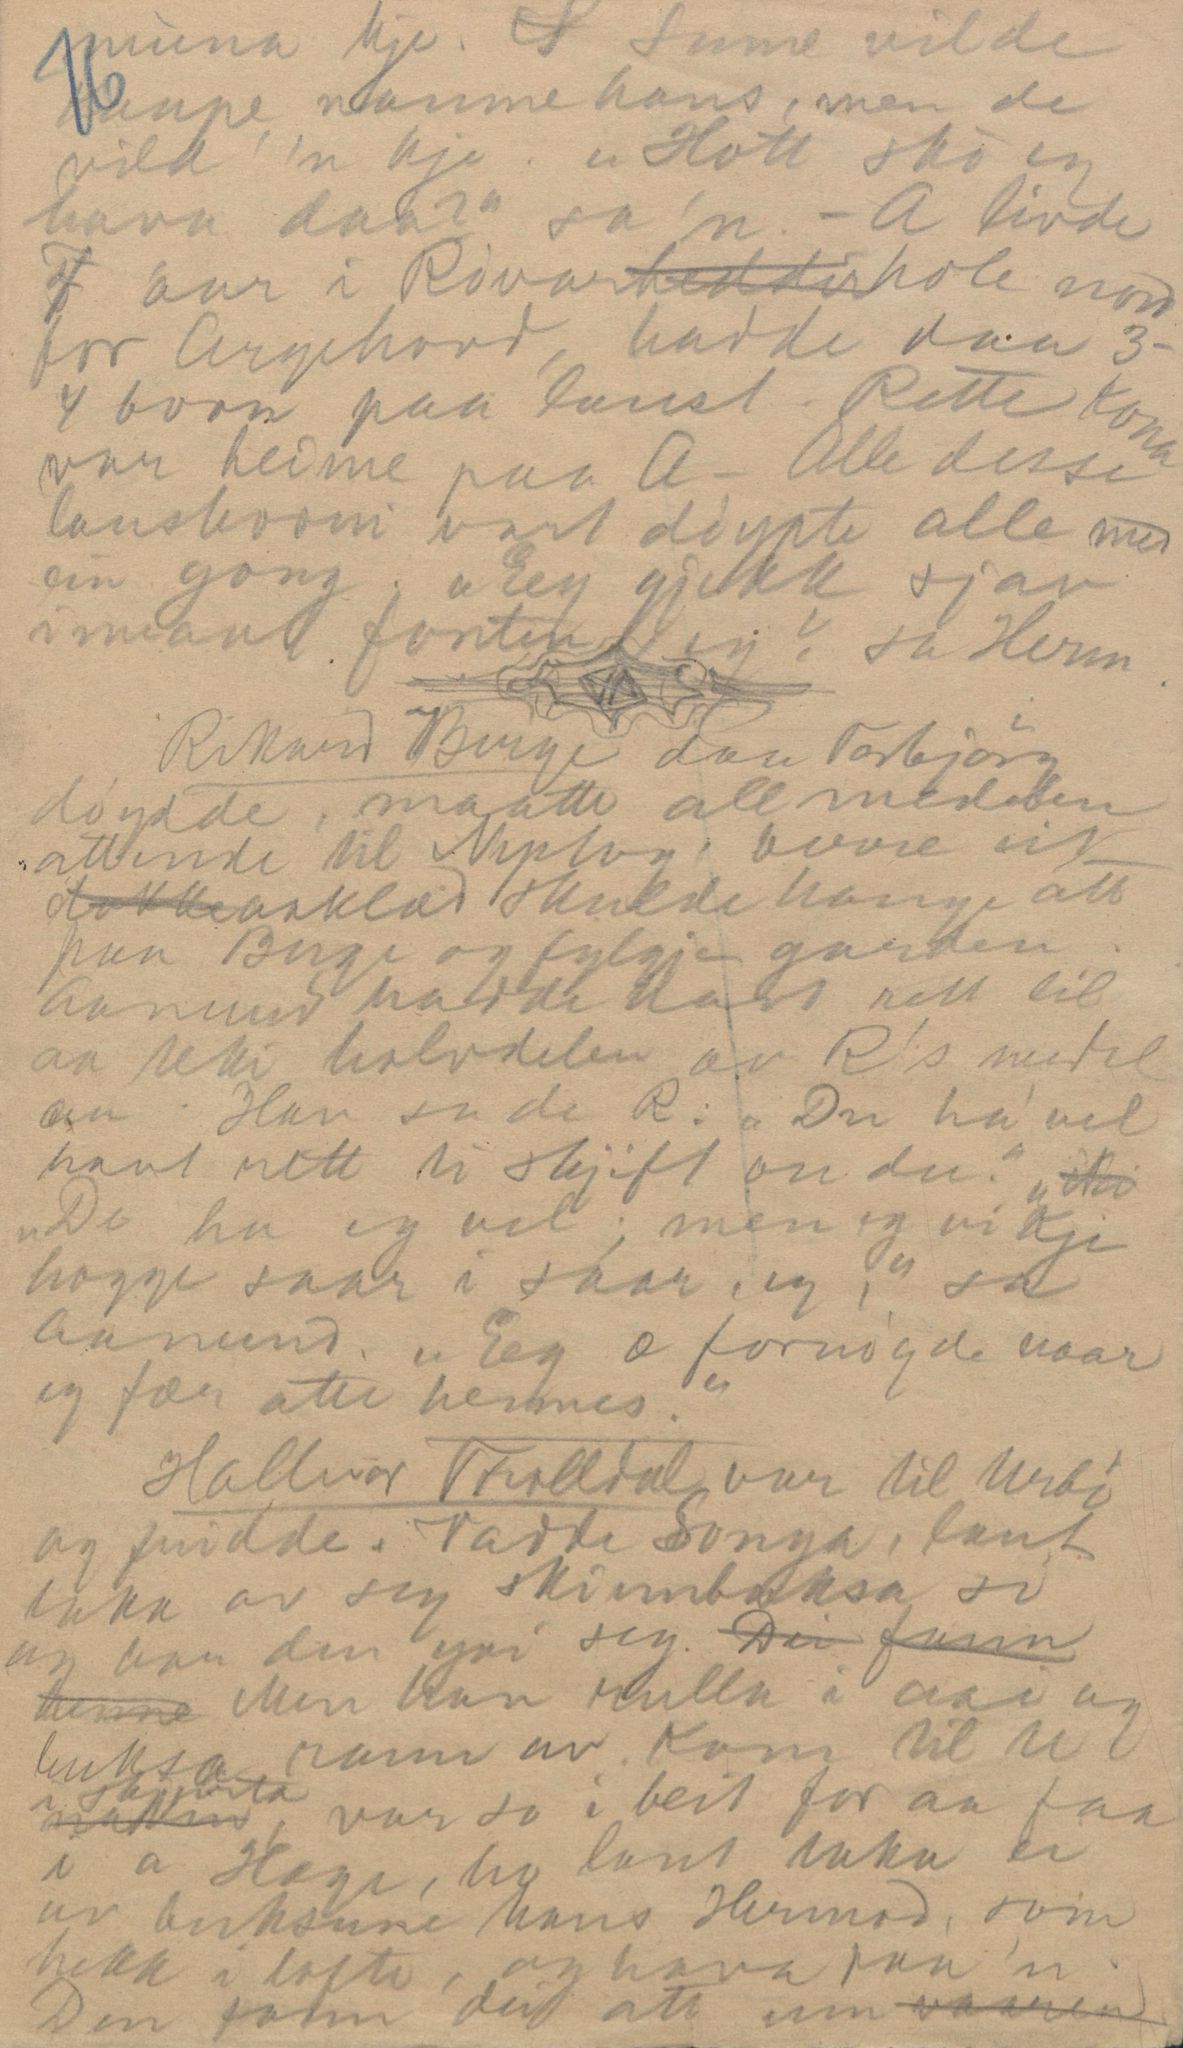 16
miena kje. Sume vilde
kaupe manne hans, men de
vild' 'n kje. "Hott sko eg
hava daa?" sa'n. – A livde
7 aar i Rovarheddirhole nord
for Argehovd, hadde daa 3-
4 born paa laust. Rette Kona
var heime paa A – Alle desse
lausborni vart döypte alle med
ein gong. "Eeg gjekk sjav
imeant fonten eg", sa Herm.
Rikard Berge daa Torbjörg
döydde, maatte all medelen
attende til Nyplog, berre eit
aaklæd skulde hange att
paa Berge og fylgje garden.
Aanund hadde havt rett til
aa teki halvdelen av R's medel
au. Han sa de R: "Du ha vel
havt rett ti skjift au du."
"De ha eg vel; men eg vi kje
hogge saar i saar, eg," sa
Aanund. "Eeg æ fornögde naar
eg fær atte hennes."
Hallvor Trolldal var til Urbö
og fridde. Vadde Songa, laut
taka av seg skinnbuksa si
og bar den yvi seg. Dei fann
henne Men han rulla i aai og
buksa rann av. Kom til U
i skjorta
nakin, var so i beit for aa faa
i a Hæge, ho laut taka ei
av buksune hans Hermod, som
hekk i lofte, og hava paa 'n.
Den fann dei att um vaaren